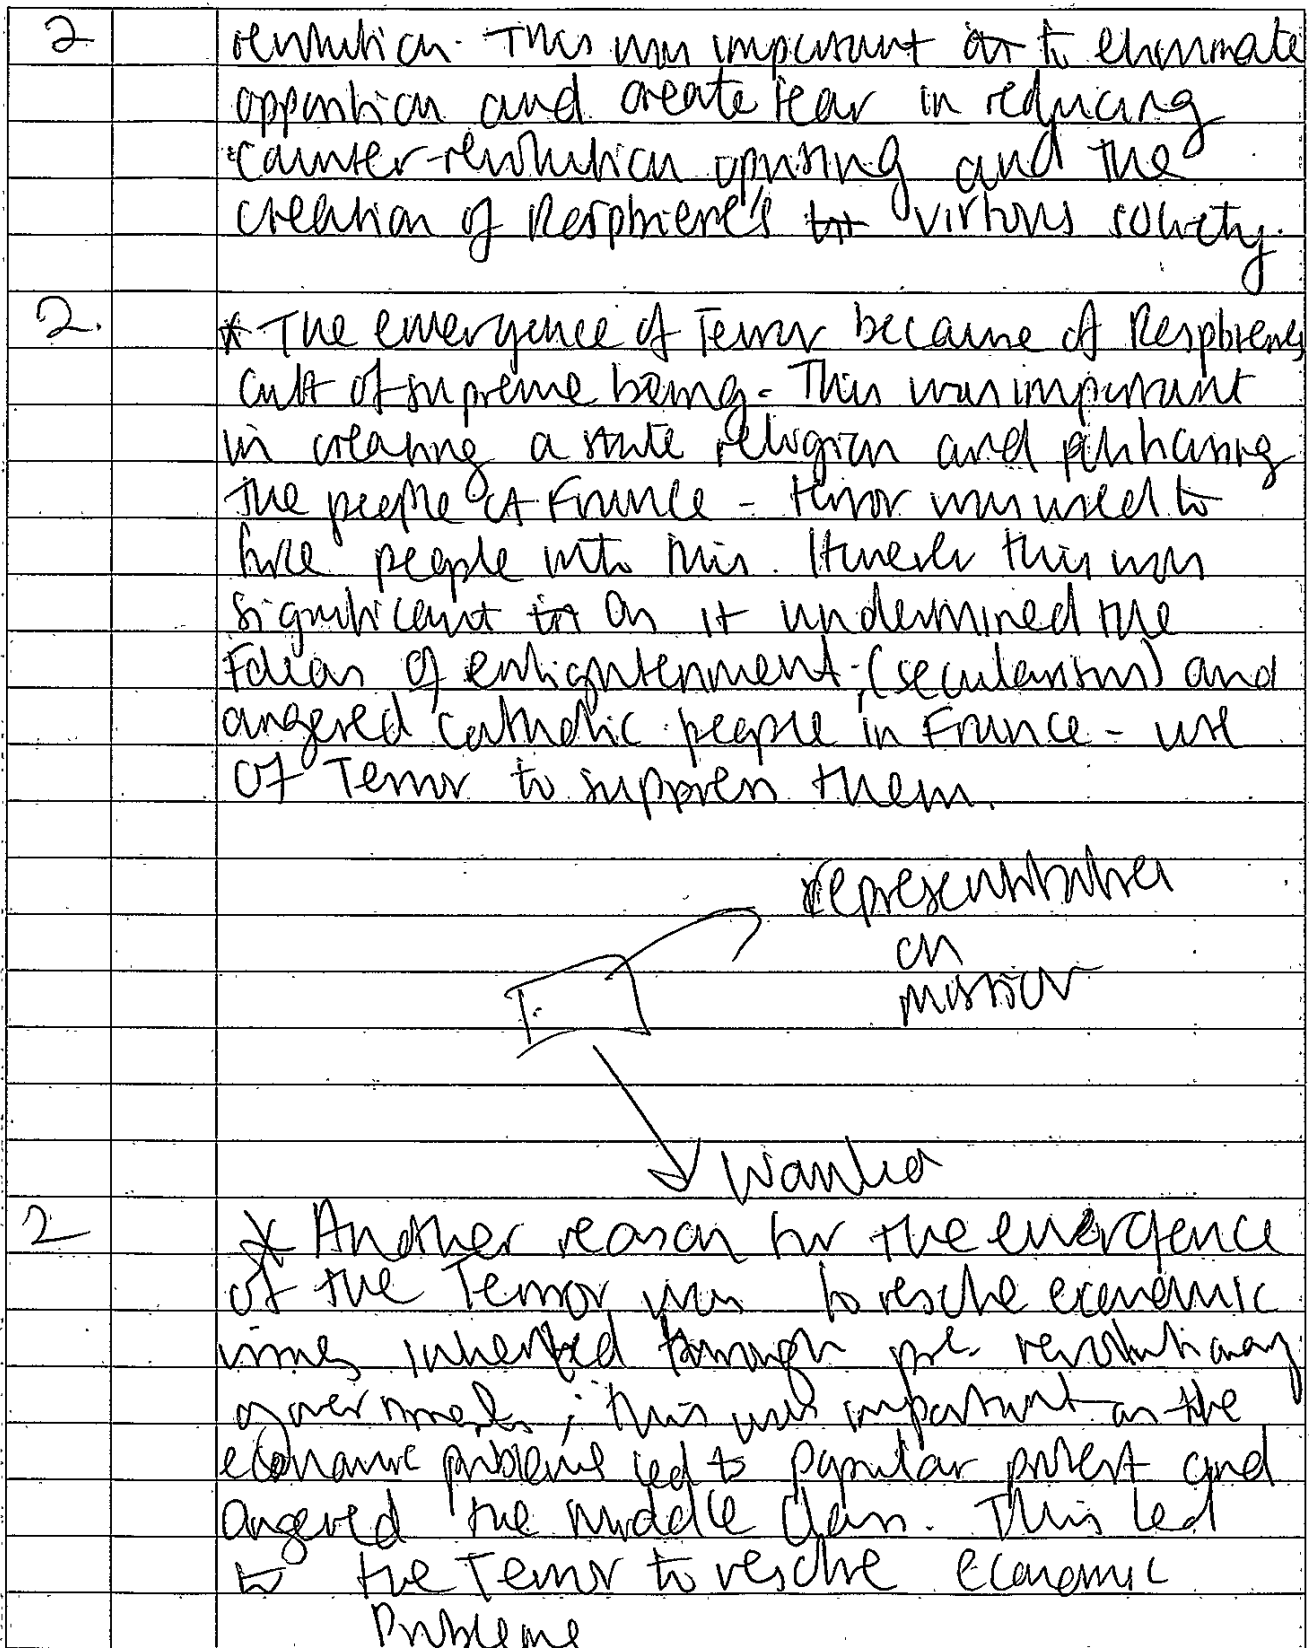 2 revolution. This was important as to eliminate
opposition and create fear in reducing
counter-revolution uprising and the
creation of Respbiere's virtous society.
2. * The emergence of Terror because of Respbieres
cult of supreme being - This was important
in creating a state religion and
the people of France - terror was used to
force people into this. However this was
significant as it undermined the
Ideas of enlightenment (secularism) and
angered catholic people in France - use
of Terror to suppress them.
representatives
on
mission
2 * Another reason for the emergence
of the Terror was to resolve economic
issues inherited through pre-revolutionary
governments; this was important as the
economic problems led to popular protest and
angered the middle class. This led
to the Terror to resolve economic
problems